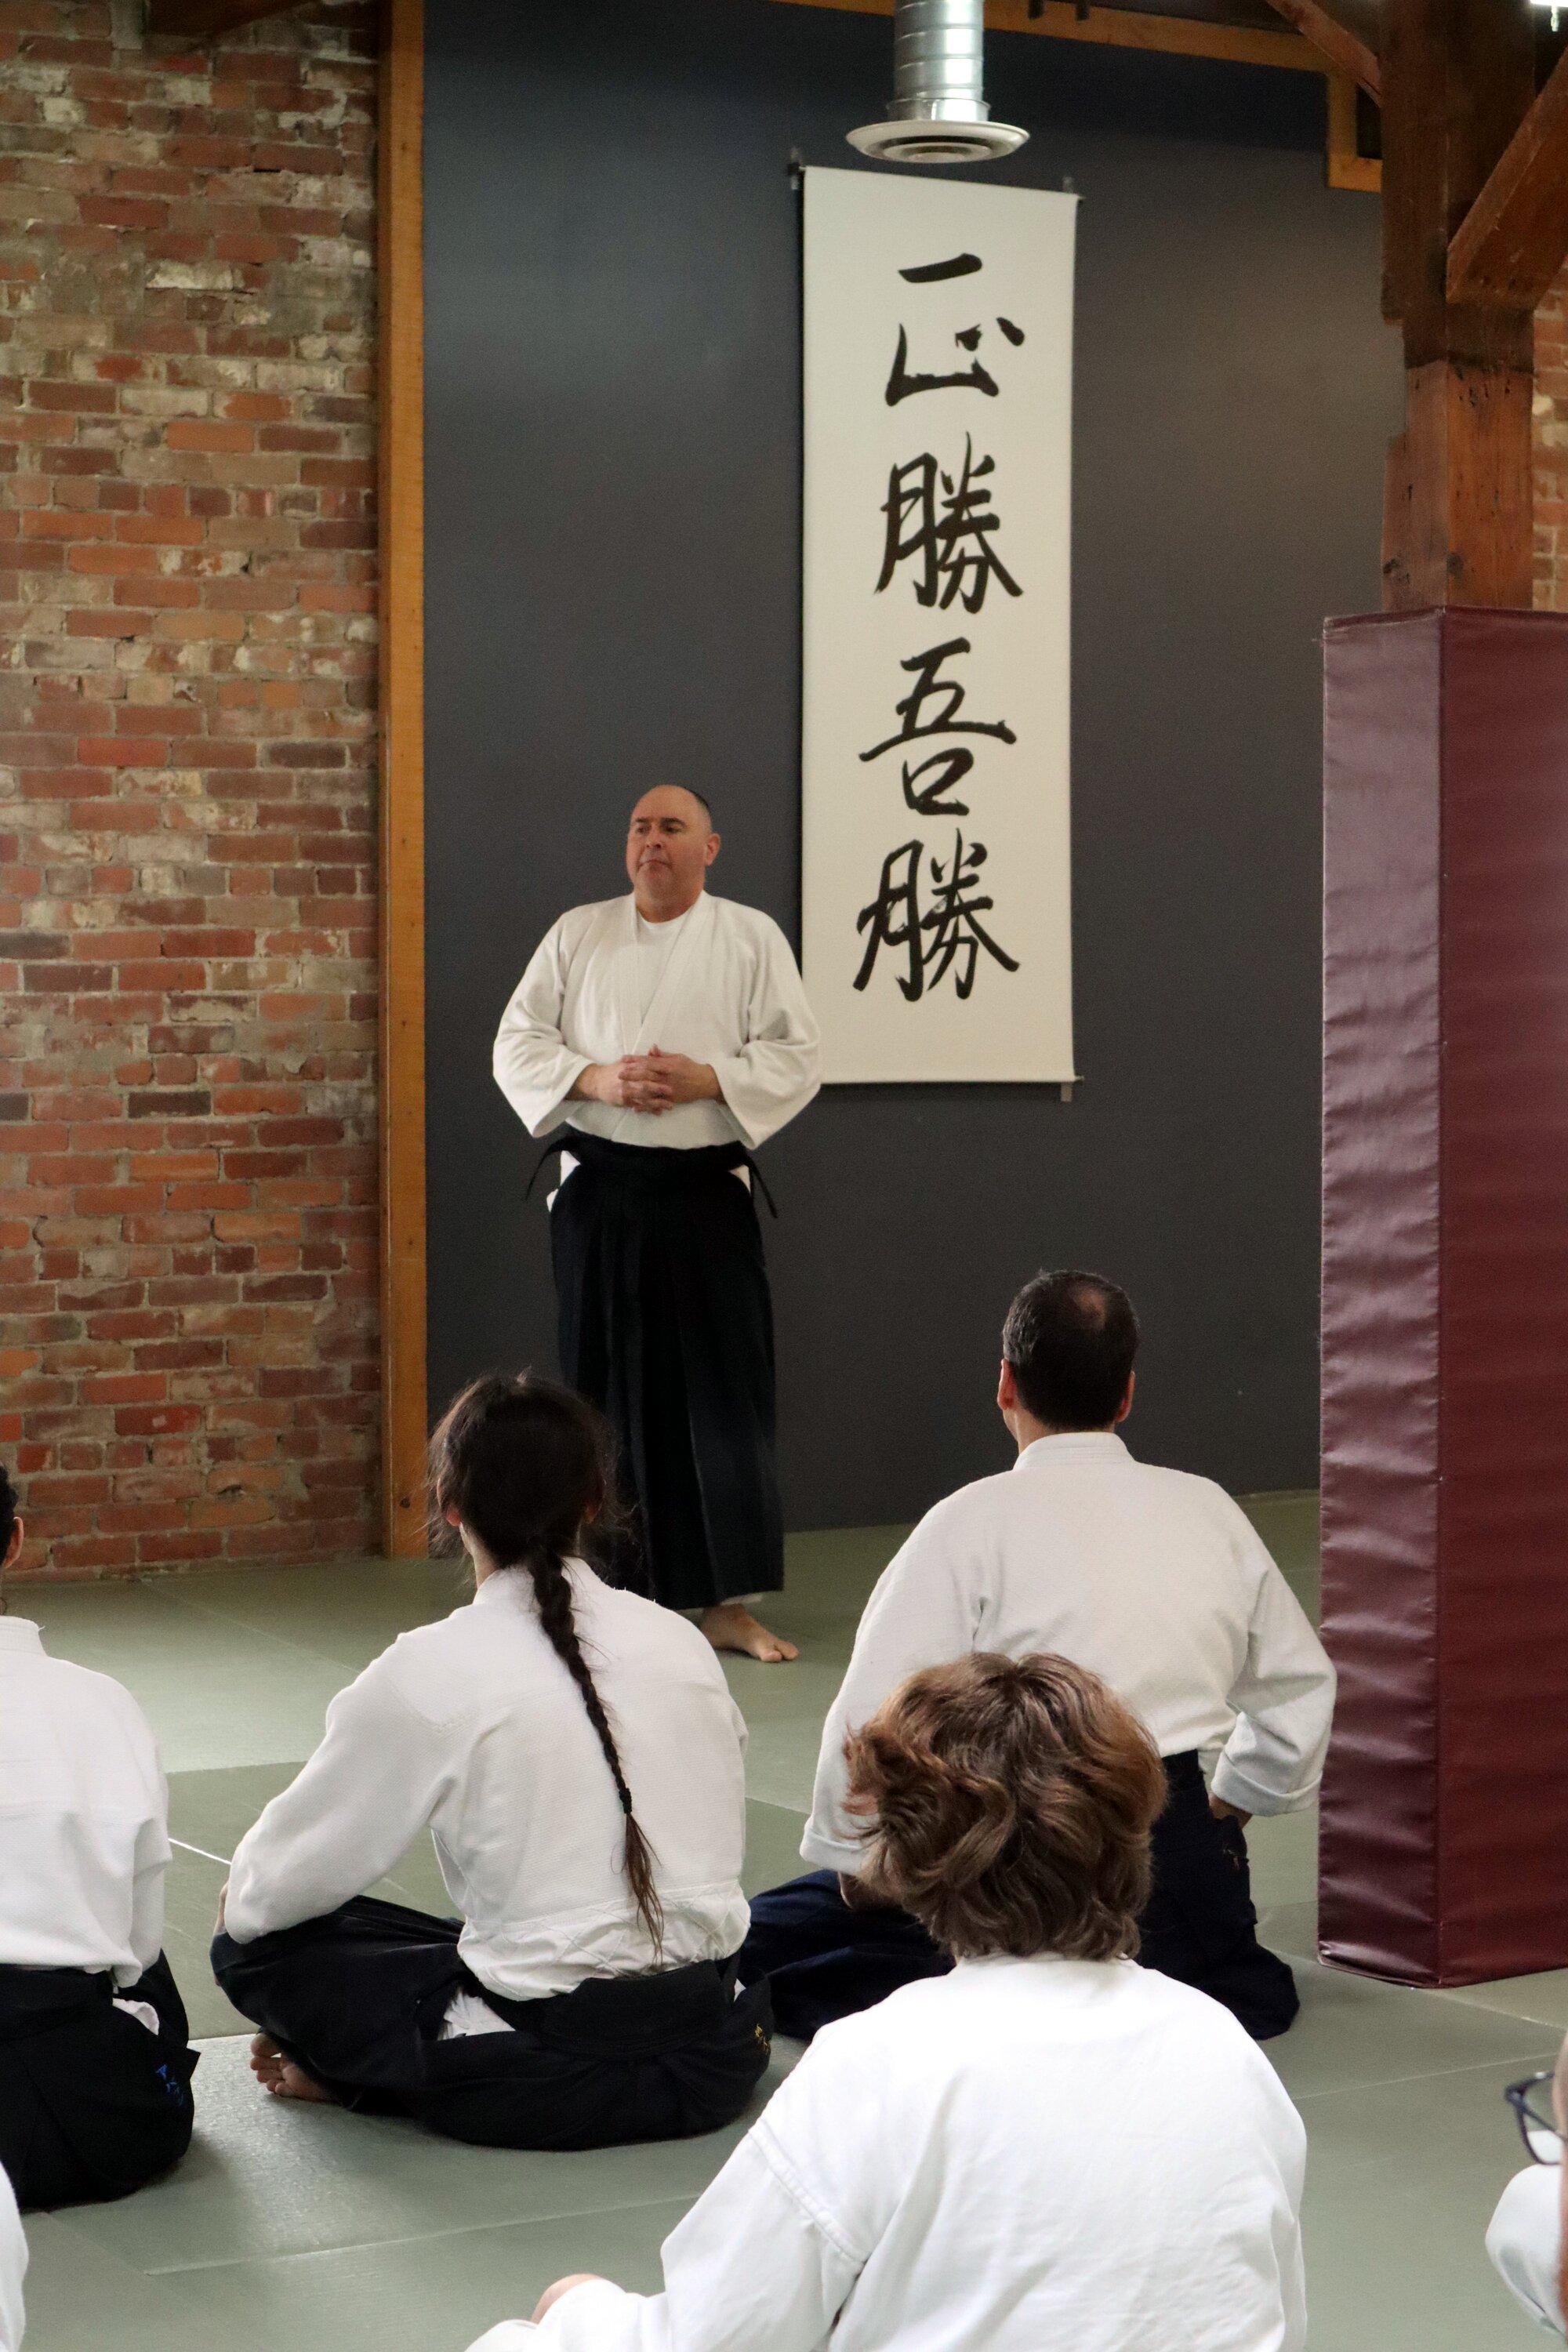 正勝吾勝